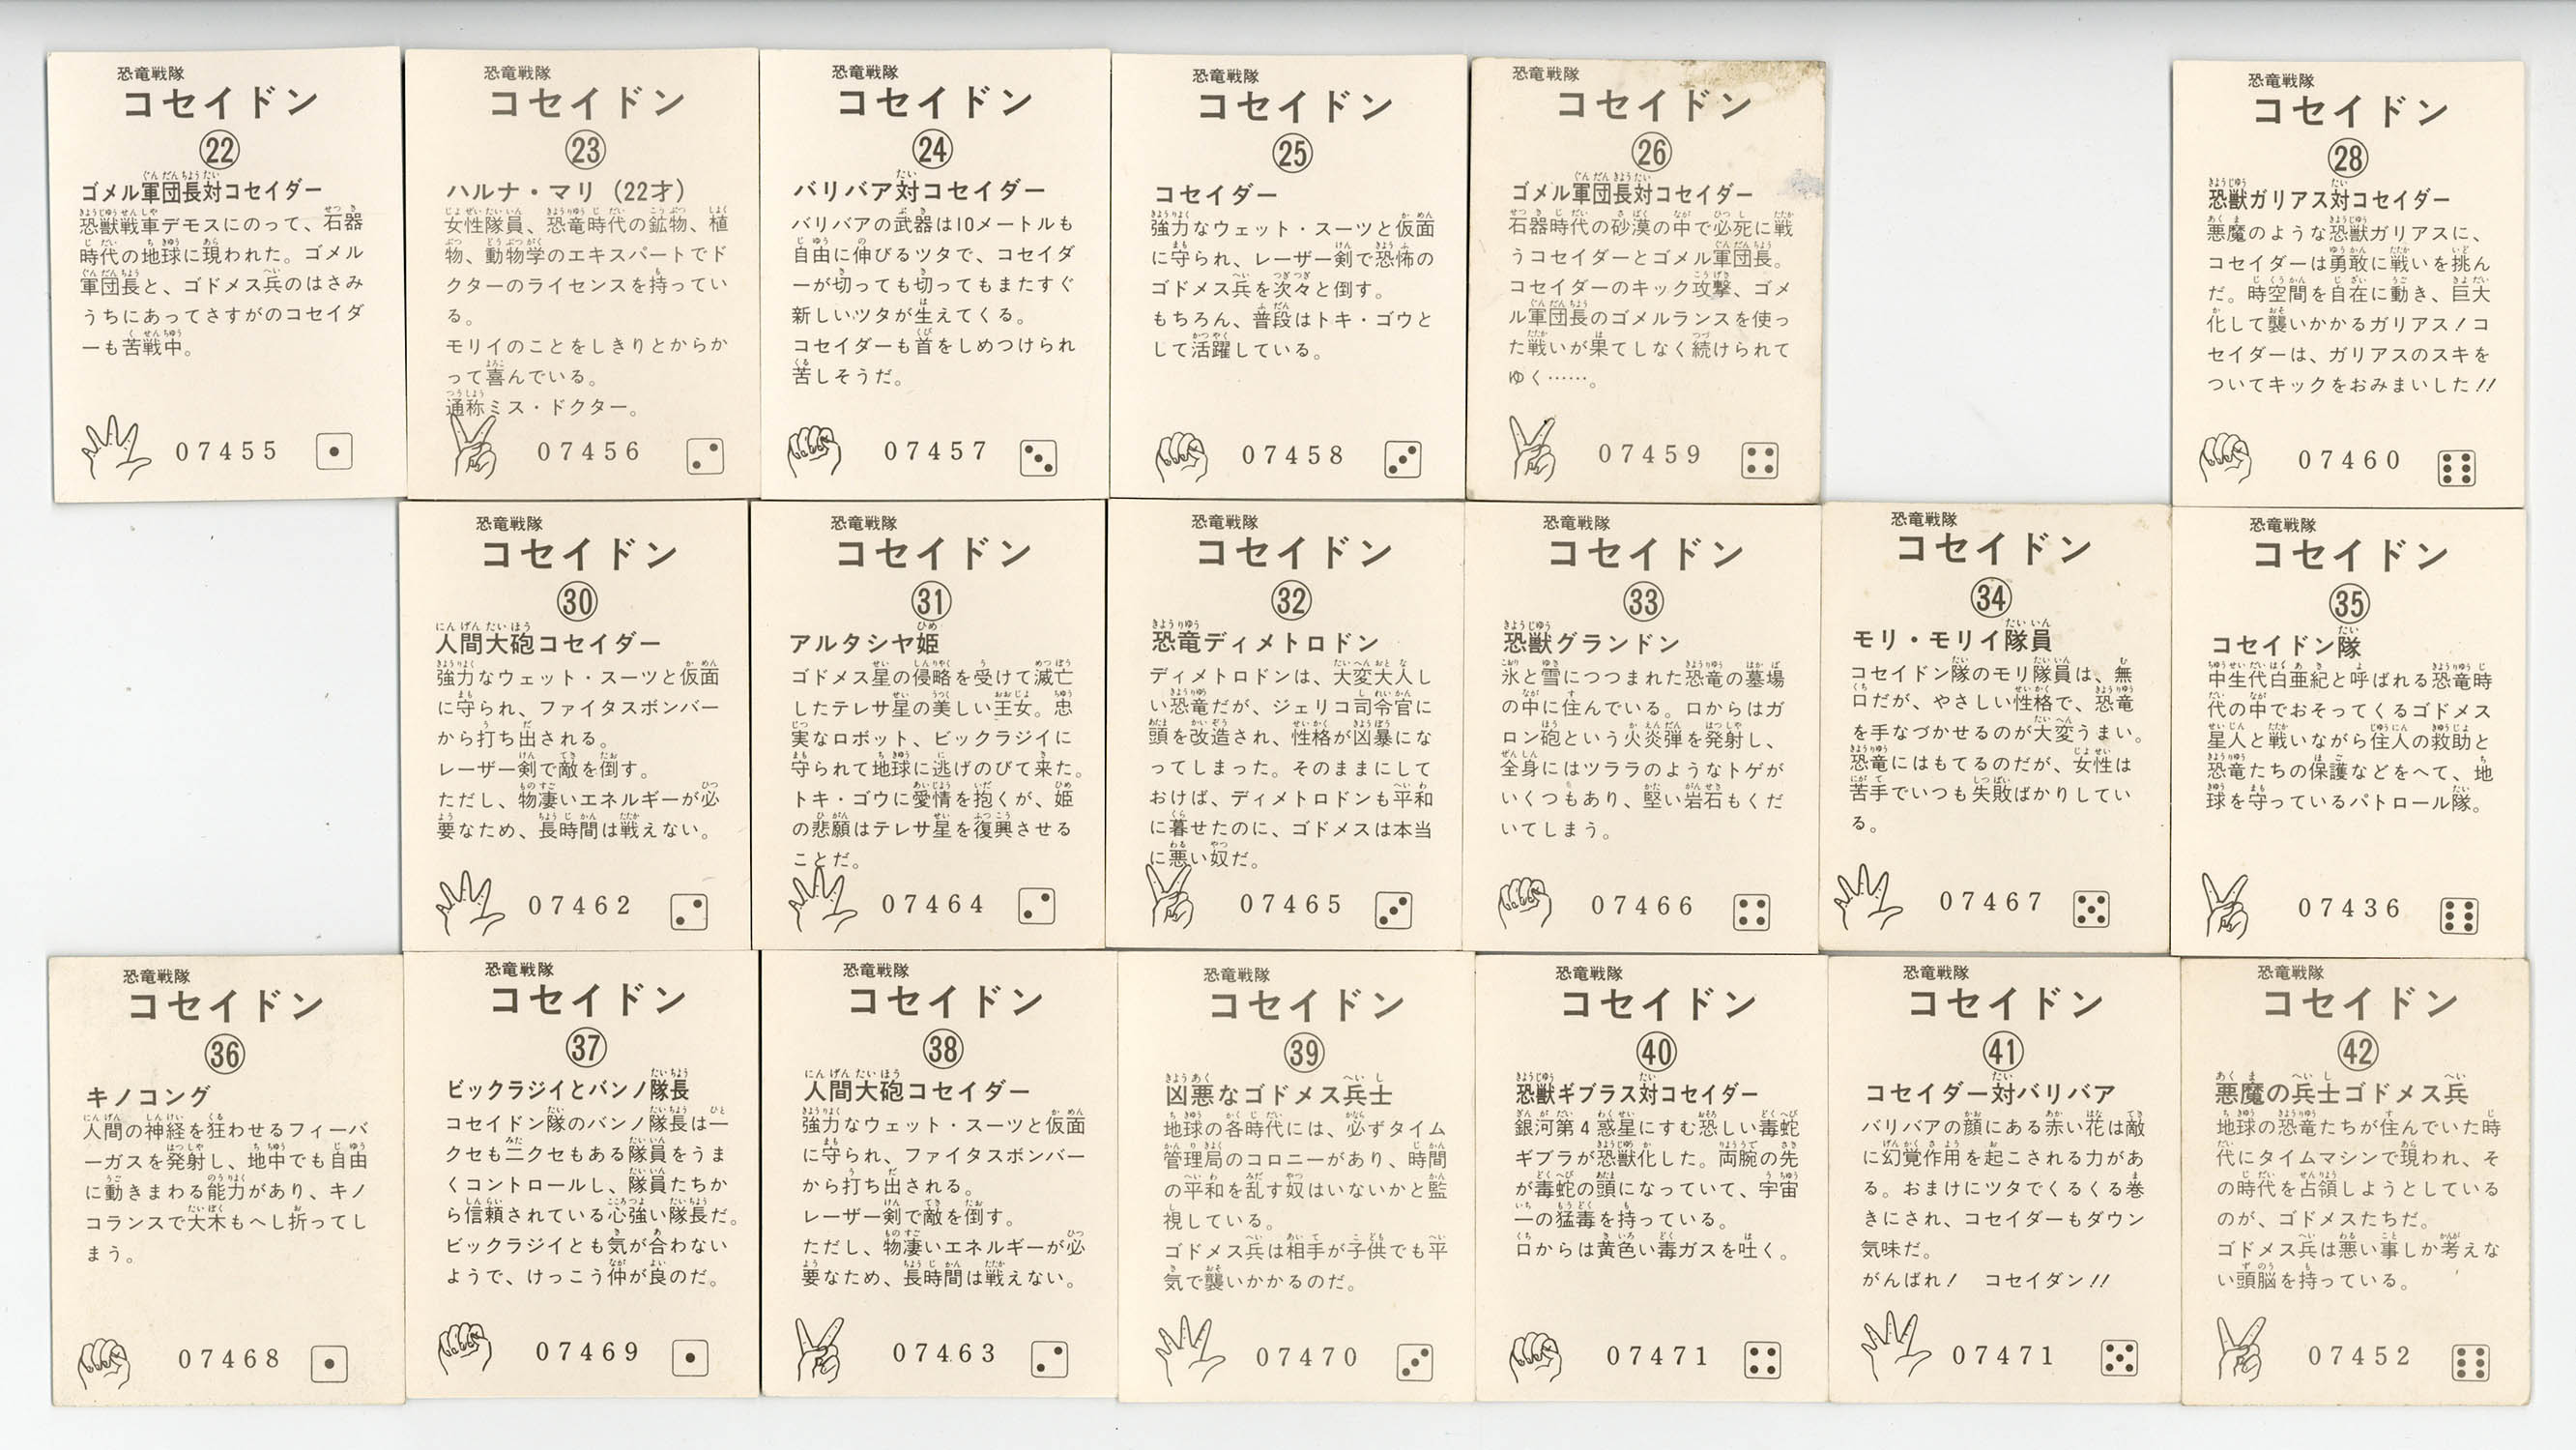 恐竜戦隊
コセイドン
㉒
ゴメル軍団長対コセイダー
恐獣戦車デモスにのって、石器
時代の地球に現われた。ゴメル
軍団長と、ゴドメス兵のはさみ
うちにあってさすがのコセイダ
ーも苦戦中。
07455
恐竜戦隊
コセイドン
㉓
ハルナ・マリ（22才）
女性隊員、恐竜時代の鉱物、植
物、動物学のエキスパートでド
クターのライセンスを持ってい
る。
モリイのことをしきりとからか
って喜んでいる。
通称ミス・ドクター。
07456
恐竜戦隊
コセイドン
㉔
バリバア対コセイダー
バリバアの武器は10メートルも
自由に伸びるツタで、コセイダ
ーが切っても切ってもまたすぐ
新しいツタが生えてくる。
コセイダーも首をしめつけられ
苦しそうだ。
07457
恐竜戦隊
コセイドン
㉕
コセイダー
強力なウェット・スーツと仮面
に守られ、レーザー剣で恐怖の
ゴドメス兵を次々と倒す。
もちろん、普段はトキ・ゴウと
して活躍している。
07458
恐竜戦隊
コセイドン
㉖
ゴメル軍団長対コセイダー
石器時代の砂漠の中で必死に戦
うコセイダーとゴメル軍団長。
コセイダーのキック攻撃、ゴメ
ル軍団長のゴメルランスを使っ
た戦いが果てしなく続けられて
ゆく……。
07459
恐竜戦隊
コセイドン
㉘
恐獣ガリアス対コセイダー
悪魔のような恐獣ガリアスに、
コセイダーは勇敢に戦いを挑ん
だ。時空間を自在に動き、巨大
化して襲いかかるガリアス！コ
セイダーは、ガリアスのスキを
ついてキックをおみまいした!!
07460
恐竜戦隊
コセイドン
㉚
人間大砲コセイダー
強力なウェット・スーツと仮面
に守られ、ファイタスボンバー
から打ち出される。
レーザー剣で敵を倒す。
ただし、物凄いエネルギーが必
要なため、長時間は戦えない。
07462
恐竜戦隊
コセイドン
㉛
アルタシヤ姫
ゴドメス星の侵略を受けて滅亡
したテレサ星の美しい王女。忠
実なロボット、ビックラジイに
守られて地球に逃げのびて来た。
トキ・ゴウに愛情を抱くが、姫
の悲願はテレサ星を復興させる
ことだ。
07464
恐竜戦隊
コセイドン
㉜
恐竜ディメトロドン
ディメトロドンは、大変大人し
い恐竜だが、ジェリコ司令官に
頭を改造され、性格が凶暴にな
ってしまった。そのままにして
おけば、ディメトロドンも平和
に暮せたのに、ゴドメスは本当
に悪い奴だ。
07465
恐竜戦隊
コセイドン
㉝
恐獣グランドン
氷と雪につつまれた恐竜の墓場
の中に住んでいる。口からはガ
ロン砲という火炎弾を発射し、
全身にはツララのようなトゲが
いくつもあり、堅い岩石もくだ
いてしまう。
07466
恐竜戦隊
コセイドン
㉞
モリ・モリイ隊員
コセイドン隊のモリ隊員は、無
口だが、やさしい性格で、恐竜
を手なづかせるのが大変うまい。
恐竜にはもてるのだが、女性は
苦手でいつも失敗ばかりしてい
る。
07467
恐竜戦隊
コセイドン
㉟
コセイドン隊
中生代白亜紀と呼ばれる恐竜時
代の中でおそってくるゴドメス
星人と戦いながら住人の救助と
恐竜たちの保護などをへて、地
球を守っているパトロール隊。
07436
恐竜戦隊
コセイドン
㊱
キノコング
人間の神経を狂わせるフィーバ
ーガスを発射し、地中でも自由
に動きまわる能力があり、キノ
コランスで大木もへし折ってし
まう。
07468
恐竜戦隊
コセイドン
㊲
ビックラジイとバンノ隊長
コセイドン隊のバンノ隊長は一
クセも二クセもある隊員をうま
くコントロールし、隊員たちか
ら信頼されている心強い隊長だ。
ビックラジイとも気が合わない
ようで、けっこう仲が良のだ。
07469
恐竜戦隊
コセイドン
㊳
人間大砲コセイダー
強力なウェット・スーツと仮面
に守られ、ファイタスボンバー
から打ち出される。
レーザー剣で敵を倒す。
ただし、物凄いエネルギーが必
要なため、長時間は戦えない。
07463
恐竜戦隊
コセイドン
㊴
凶悪なゴドメス兵士
地球の各時代には、必ずタイム
管理局のコロニーがあり、時間
の平和を乱す奴はいないかと監
視している。
ゴドメス兵は相手が子供でも平
気で襲いかかるのだ。
07470
恐竜戦隊
コセイドン
㊵
恐獣ギブラス対コセイダー
銀河第4惑星にすむ恐しい毒蛇
ギブラが恐獣化した。両腕の先
が毒蛇の頭になっていて、宇宙
一の猛毒を持っている。
口からは黄色い毒ガスを吐く。
07471
恐竜戦隊
コセイドン
㊶
コセイダー対バリバア
バリバアの顔にある赤い花は敵
に幻覚作用を起こされる力があ
る。おまけにツタでくるくる巻
きにされ、コセイダーもダウン
気味だ。
がんばれ！　コセイダン!!
07471
恐竜戦隊
コセイドン
㊷
悪魔の兵士ゴドメス兵
地球の恐竜たちが住んでいた時
代にタイムマシンで現われ、そ
の時代を占領しようとしている
のが、ゴドメスたちだ。
ゴドメス兵は悪い事しか考えな
い頭脳を持っている。
07452